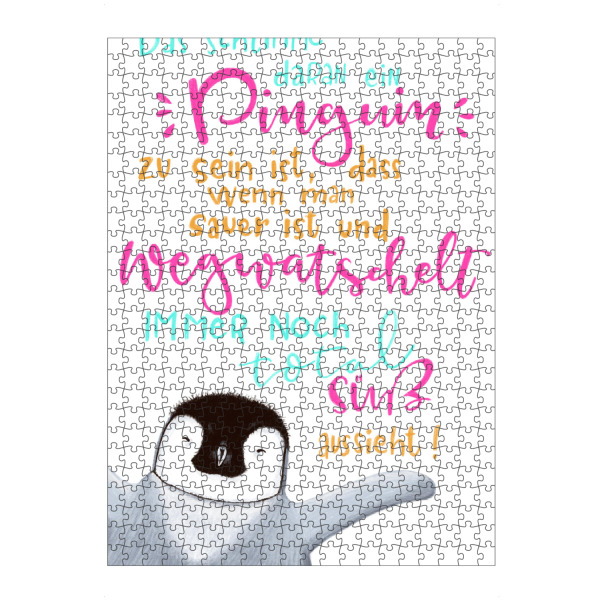 Das Schlimme
daran ein
Pinguin
zu sein ist, dass
wenn man
sauer ist und
wegwatschelt
IMMER NOCH
total
süß
aussieht!